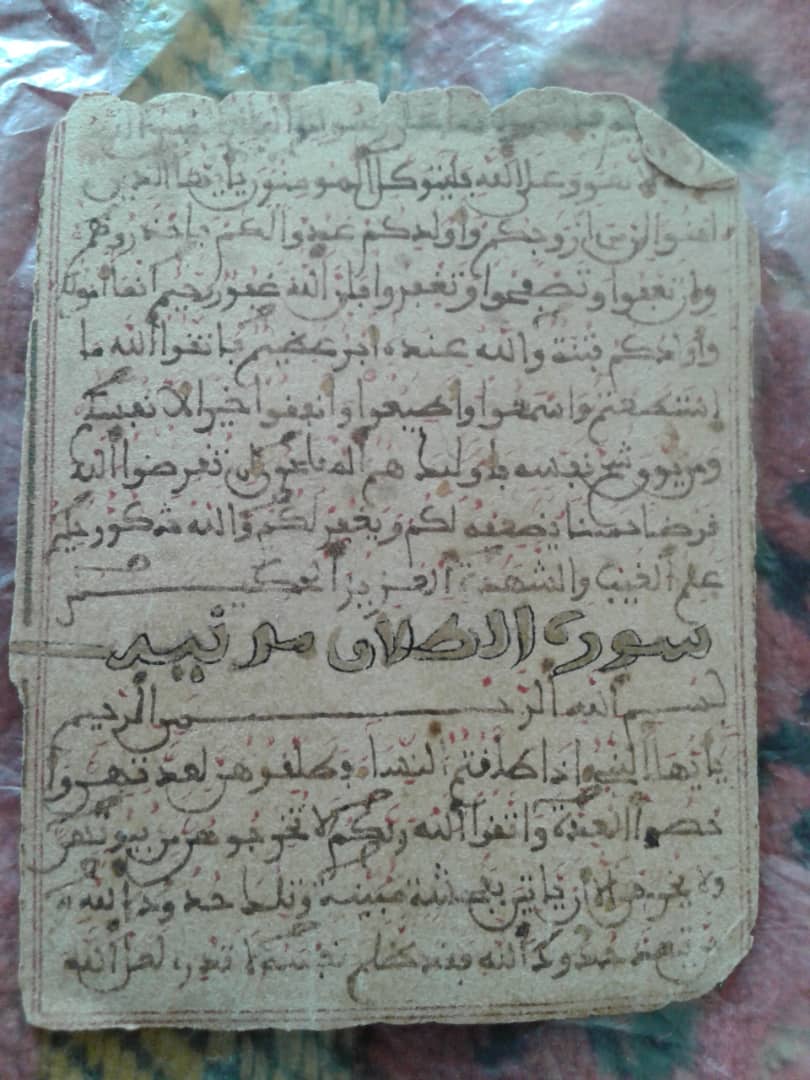 لا هو وعلى الله فليتوكل المومنون يايها الذين
امنوا ان من ازوجكم واولدكم عدوا لكم فاحذروهم
وان تعفوا وتصفحوا وتغفروا فان الله غفور رحيم انما امولكم
وأولدكم فتنة والله عنده اجر عظيم فاتقوا الله ما
استطعتم واسمعوا واطيعوا وانفقوا خيرا لانفسكم
ومن يوق شح نفسه فاوليك هم المفلحون ان تقرضوا الله
قرضا حسنا يضعفه لكم ويغفر لكم والله شكور حليم
علم الغيب والشهدة العزيز الحكيم
سورة الاطلاق مدنية
بسم الله الرحمن الرحيم
يايها النبي اذا طلقتم النساء فطلقوهن لعدتهن وا
حصوا العدة واتقوا الله ربكم لا تخرجوهن من بيوتهن
ولا يخرجن الا ان ياتين بفحشة مبينة وتلك حدود الله و
من يتعد حدود الله فقد ظلم نفسه لا تدري لعل الله